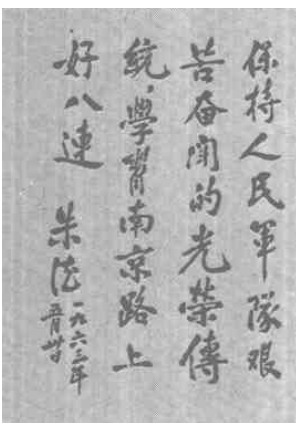 保持人民軍隊艱
苦奋鬥的光榮傳
統，學習南京路上
好八連
朱德
一九六三年